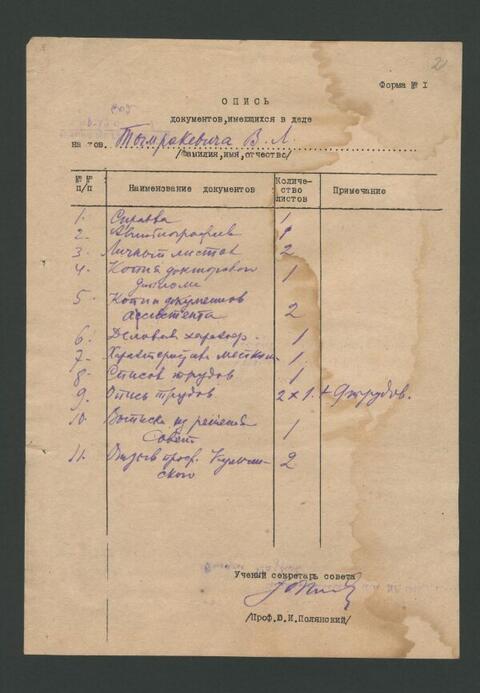 2
Форма № I
ОПИСЬ
документов, имеющихся в деле
на тов. Тымракевича В. Л.
/Фамилия, имя, отчество/
№ № п/п Наименование документов Количество листов Примечание
1. Справка 1
2. Автобиография 1
3. Личный листок 2
4. Копия докторской диплома 1
5. Копии документов ассистента 2
6. Деловая характер. 1
7. Характеристика месткома 1
8. Список трудов 1
9. Опись трудов 2 x 1. + 9 трудов.
10. Выписка из решения Совет 1
11. Отзыв проф. 2
Ученый секретарь совета
/Проф. Ю.И.Полянский/